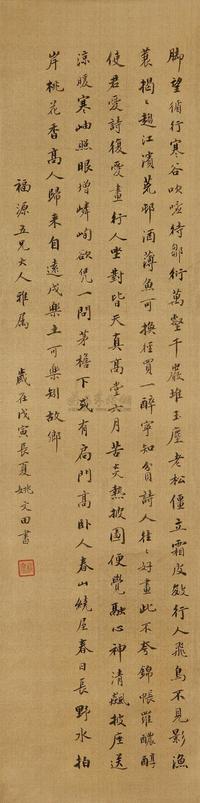 脚望循行寒谷吹嘘待鄒衍萬壑千巖堆玉塵老松僵立霜皮皴行人飛鳥不見影漁
蓑揭〻趨江濱荒邨酒薄魚可換徑買一醉寧知貧詩人往〻好畫此不夸錦帳羅醲醇
使君愛詩復愛畫行人坐對皆天真高堂六月苦炎熱披圖便覺融心神清飆披座送
涼暖寒岫照眼增嶙峋欲凭一問茅檐下或有扃門高卧人春山繞屋春日長野水拍
岸桃花香高人歸来自遠戍樂土可樂知故鄉
福源五兄大人雅属 歲在戊寅長夏姚文田書